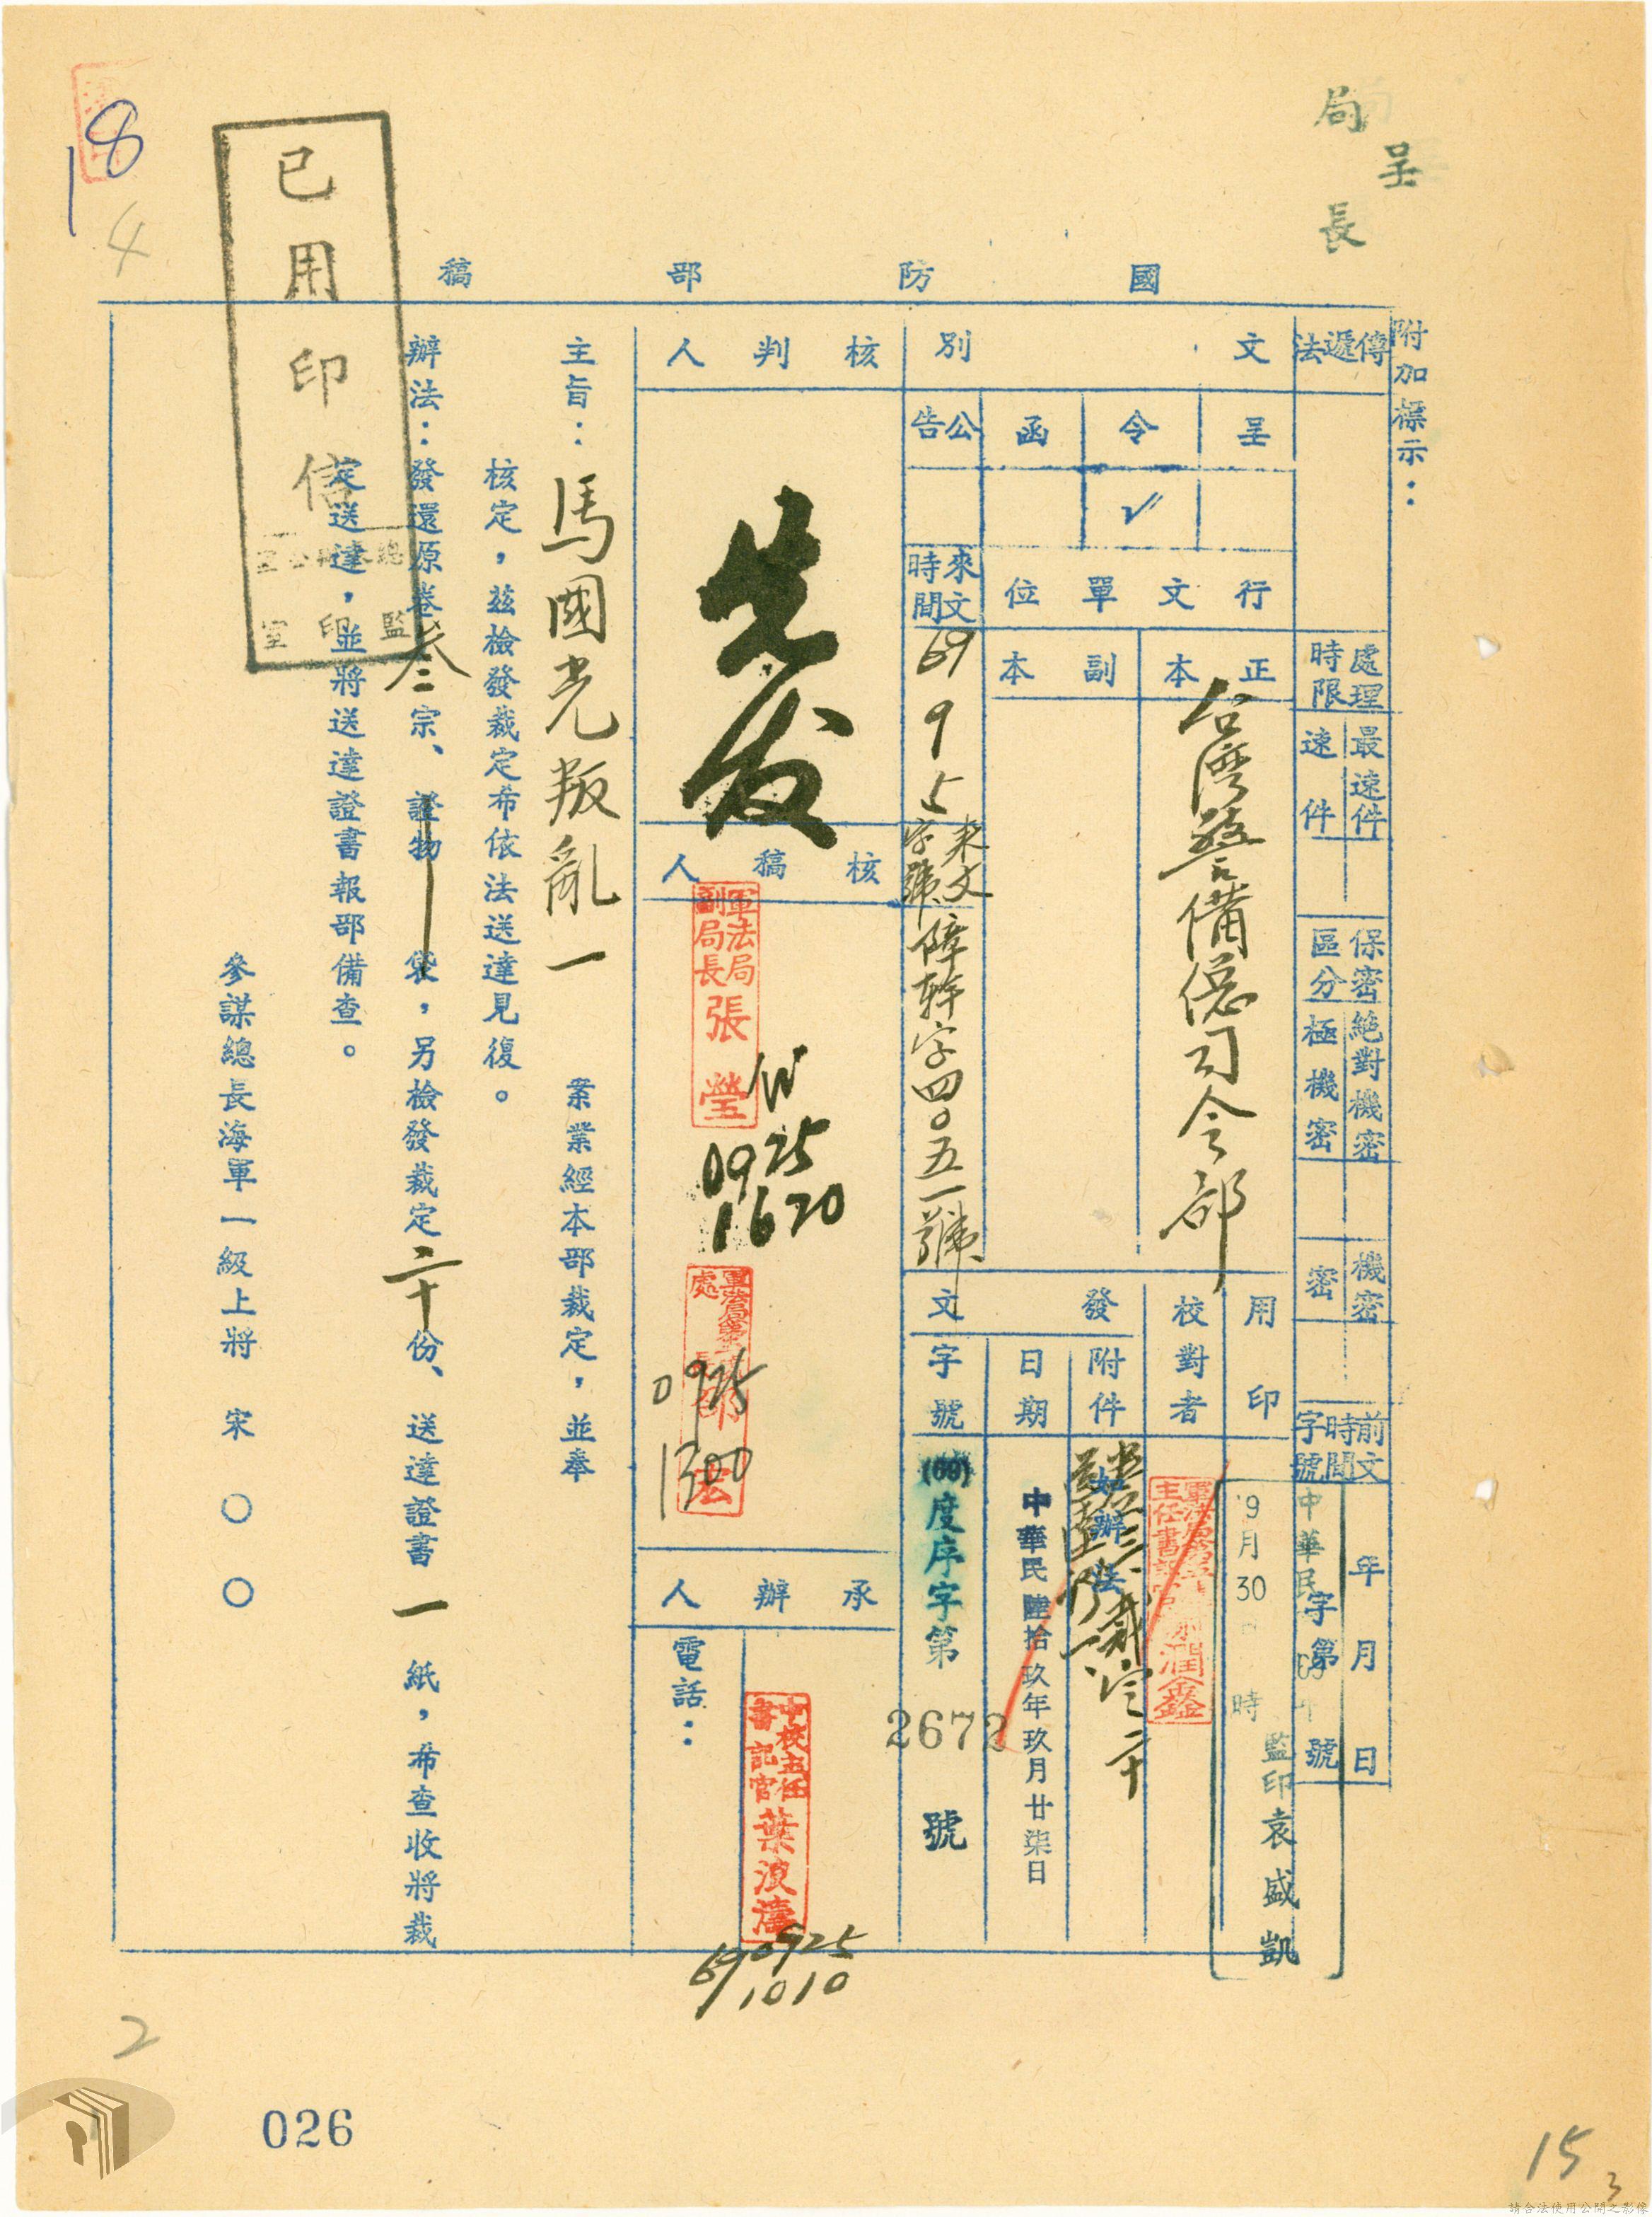 呈
局長
國防部稿
附加標示：
傳遞法
處理時限
最速件
速件
保密區分
絕對機密
極機密
機密
密
前文時間字號
年月日
字第號
文別
呈
令
函
公告
✓
行文單位
正本
副本
台灣警備總司令部
來文時間
69 9 5
來文字號
障幹字四〇五一號
用印
9月30
時
監印袁盛凱
校對者
發文
附件
如辦法
日期
中華民陸拾玖年玖月廿柒日
字號
(69)度序字第2672號
核判人
先發
核稿人
軍法局副局長張瑩
0925
1620
0925
1300
承辦人
電話：
中校主任書記官葉波濤
690925
1010
主旨：馬國光叛亂一案業經本部裁定，並奉
核定，茲檢發裁定希依法送達見復。
辦法：發還原卷叁宗、證物袋，另檢發裁定二十份、送達證書一紙，希查收將裁
定送達，並將送達證書報部備查。
參謀總長海軍一級上將宋〇〇
已用印信
監印室
18
4
2
026
15
3
請合法使用公開之影像